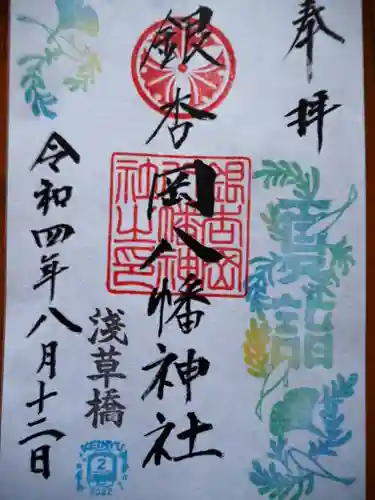 奉拝
夏詣
銀杏岡八幡神社
銀杏岡八幡神社之印
淺草橋
令和四年八月十二日
KEIKYU
2
2022